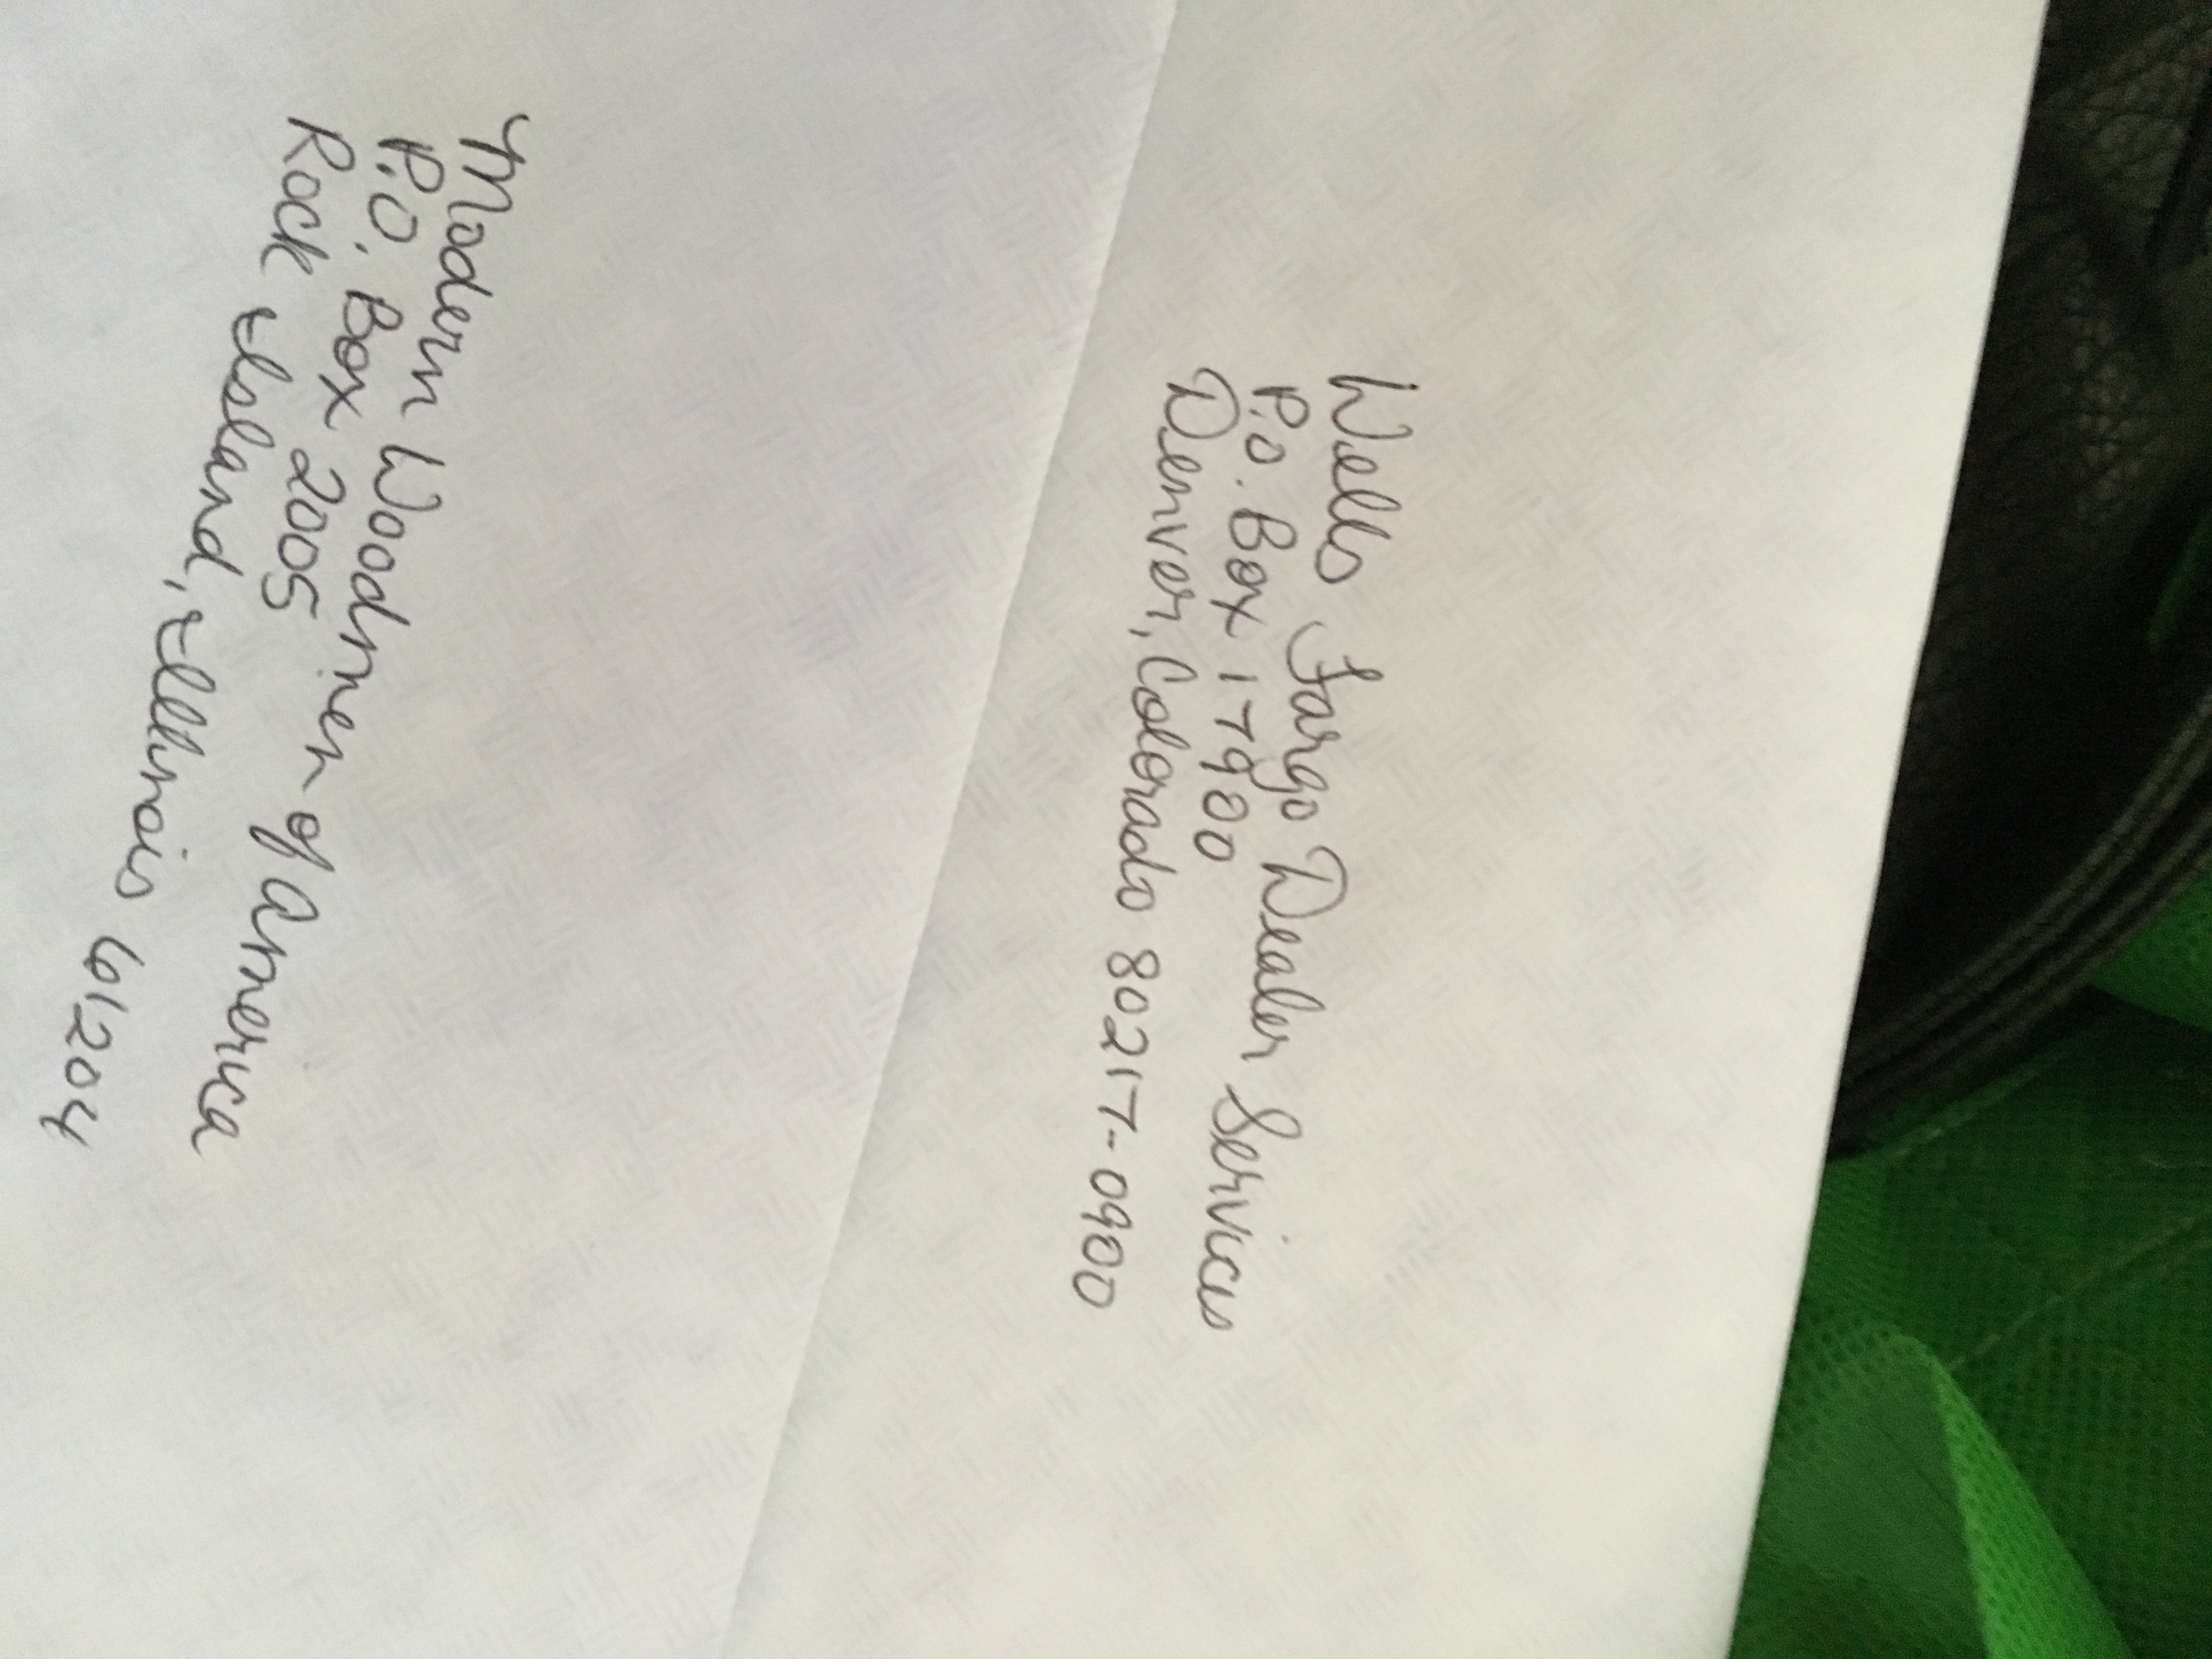 Wells Fargo Dealer Services
P.O. Box 17900
Denver, Colorado 80217-0900
Modern Woodmen of America
P.O. Box 2005
Rock Island, Illinois 61204